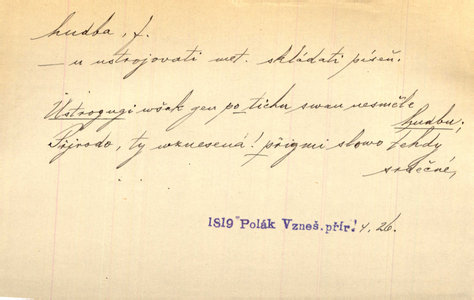 hudba, f.
— u ustrojovati met. skládati píseň.
Ustrogugi wšak gen po tichu swau nesměle
hudbu;
Přjrodo, ty wznesená! přigmi slowo tehdy
srdečné,
1819 Polák Vzneš. přír. 4, 26.